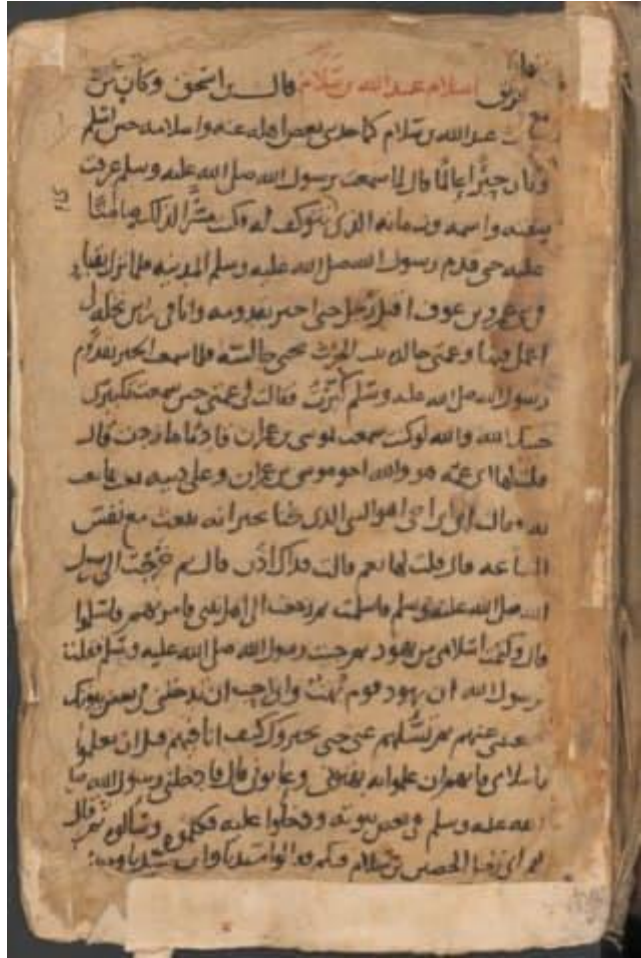 اسلام عبد الله بن سلام قال ابن اسحق وكان من
عبد الله بن سلام كما حدثني بعض اهله عنه واسلامه حين اسلم
وكان حبرا عالما قال لما سمعت برسول الله صلى الله عليه وسلم عرفت
صفته واسمه وزمانه الذي نتوكف له فكنت مسرا لذلك صامتا
عليه حتى قدم رسول الله صلى الله عليه وسلم المدينة فلما نزل بقباء
في بني عمرو بن عوف اقبل رجل حتى اخبر بقدومه وانا في راس نخلة لي
اعمل فيها وعمتي خالدة بنت الحرث تحتي جالسة فلما سمعت الخبر بقدوم
رسول الله صلى الله عليه وسلم كبرت فقالت لي عمتي حين سمعت تكبيري
خيبك الله والله لو كنت سمعت بموسى بن عمران قادما ما زدت قال
قلت لها اي عمة هو والله اخو موسى بن عمران وعلى دينه بعث بما بعث
به قال اي ابن اخي اهو النبي الذي كنا نخبر انه يبعث مع نفس
الساعة قال قلت لها نعم قالت فذاك اذن قال ثم خرجت الى رسول
الله صلى الله عليه وسلم فاسلمت ثم رجعت الى اهل بيتي فامرتهم فاسلموا
قال وكتمت اسلامي من يهود ثم جئت رسول الله صلى الله عليه وسلم فقلت
يرسول الله ان يهود قوم بهت واني احب ان تدخلني في بعض بيوتك
تغيبني عنهم ثم تسلهم عني حتى يخبروك كيف انا فيهم قبل ان يعلموا
باسلامي فانهم ان علموا به بهتوني وعابوني قال فادخلني رسول الله صلى
الله عليه وسلم في بعض بيوته ودخلوا عليه فكلموه وسألوه ثم قال
لهم اي رجل الحصين بن سلام فيكم قالوا سيدنا وابن سيدنا